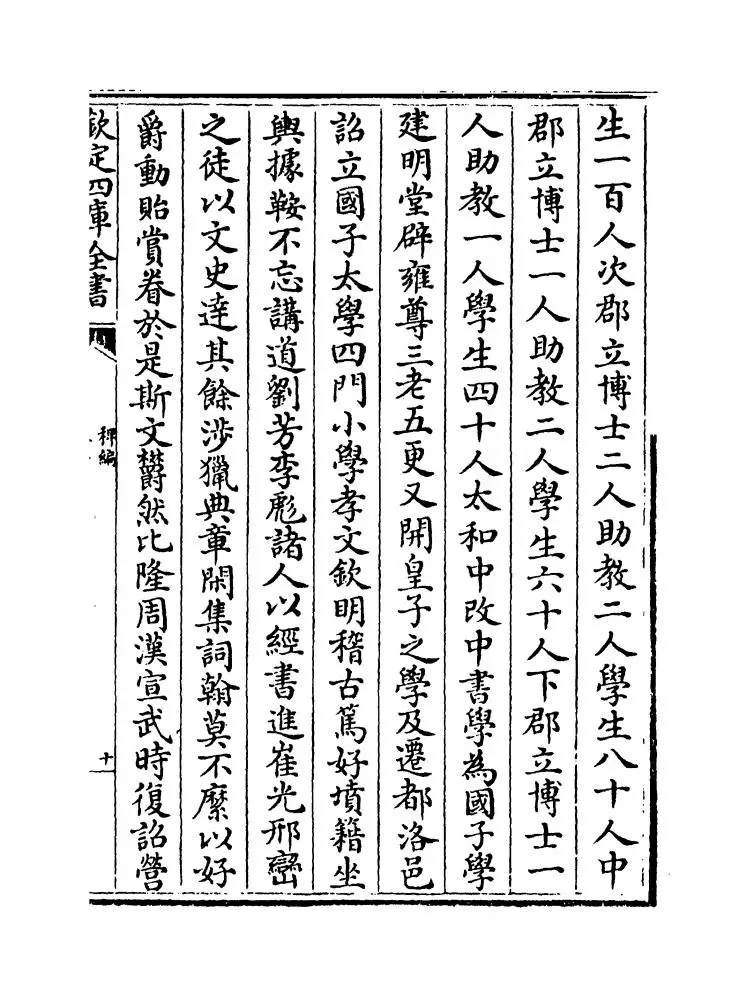 生一百人次郡立博士二人助教二人學生八十人中
郡立博士一人助教二人學生六十人下郡立博士一
人助教一人學生四十人太和中改中書學為國子學
建明堂辟雍尊三老五更又開皇子之學及遷都洛邑
詔立國子太學四門小學孝文欽明稽古篤好墳籍坐
輿據鞍不忘講道劉芳李彪諸人以經書進崔光邢巒
之徒以文史達其餘涉獵典章閑集詞翰莫不縻以好
爵動貽賞眷於是斯文欝然比隆周漢宣武時復詔營
欽定四庫全書
稗編
十